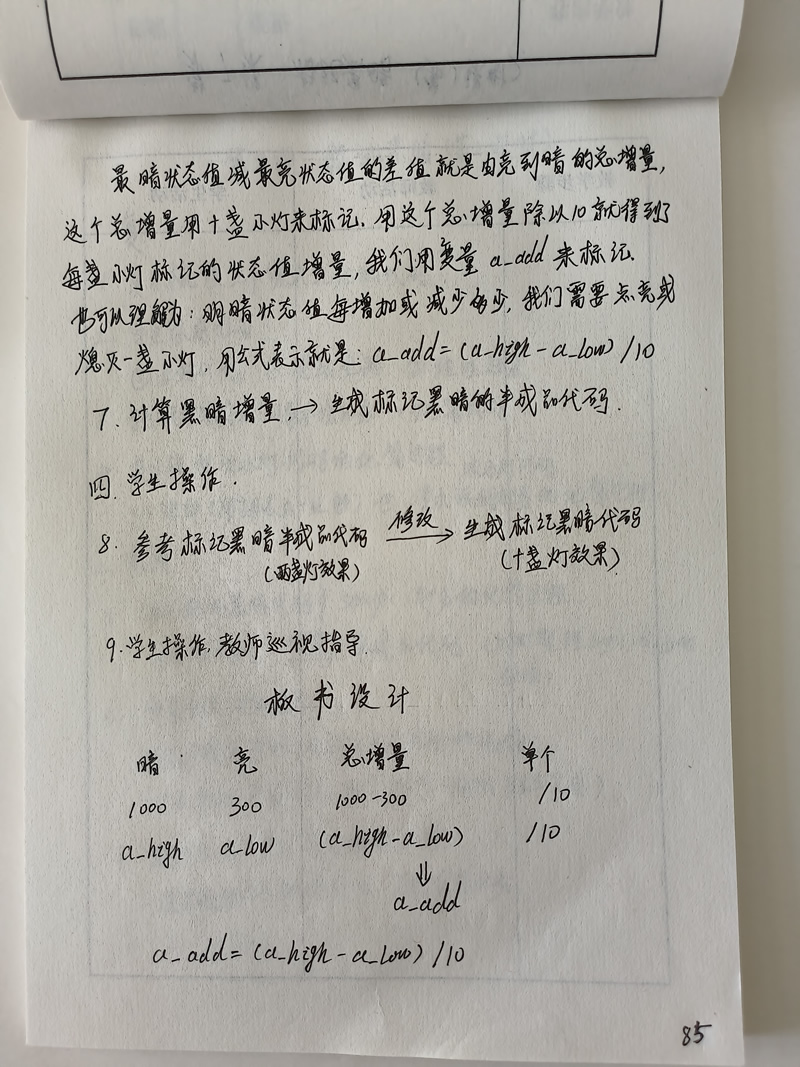 最暗状态值减最亮状态值的差值就是由亮到暗的总增量,
这个总增量用十盏小灯来标记. 用这个总增量除以10就得到了
每盏小灯标记的状态值增量, 我们用变量 a_add 来标记.
也可以理解为: 明暗状态值每增加或减少多少, 我们需要点亮或
熄灭一盏小灯, 用公式表示就是: a_add=(a_high-a_low)/10
7. 计算黑暗增量, → 生成标记黑暗的半成品代码.
四. 学生操作.
8. 参考标记黑暗半成品代码 修改 → 生成标记黑暗代码
(两盏灯效果) (十盏灯效果)
9. 学生操作, 教师巡视指导.
板书设计
暗 亮 总增量 单个
1000 300 1000-300 /10
a_high a_low (a_high-a_low) /10
⇓
a_add
a_add=(a_high-a_low)/10
85